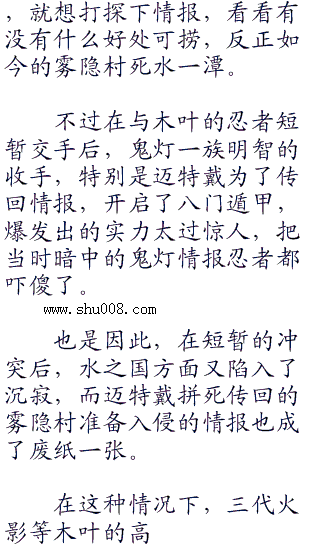 ，就想打探下情报，看看有
没有什么好处可捞，反正如
今的雾隐村死水一潭。
不过在与木叶的忍者短
暂交手后，鬼灯一族明智的
收手，特别是迈特戴为了传
回情报，开启了八门遁甲，
爆发出的实力太过惊人，把
当时暗中的鬼灯情报忍者都
吓傻了。
www.shu008.com
也是因此，在短暂的冲
突后，水之国方面又陷入了
沉寂，而迈特戴拼死传回的
雾隐村准备入侵的情报也成
了废纸一张。
在这种情况下，三代火
影等木叶的高